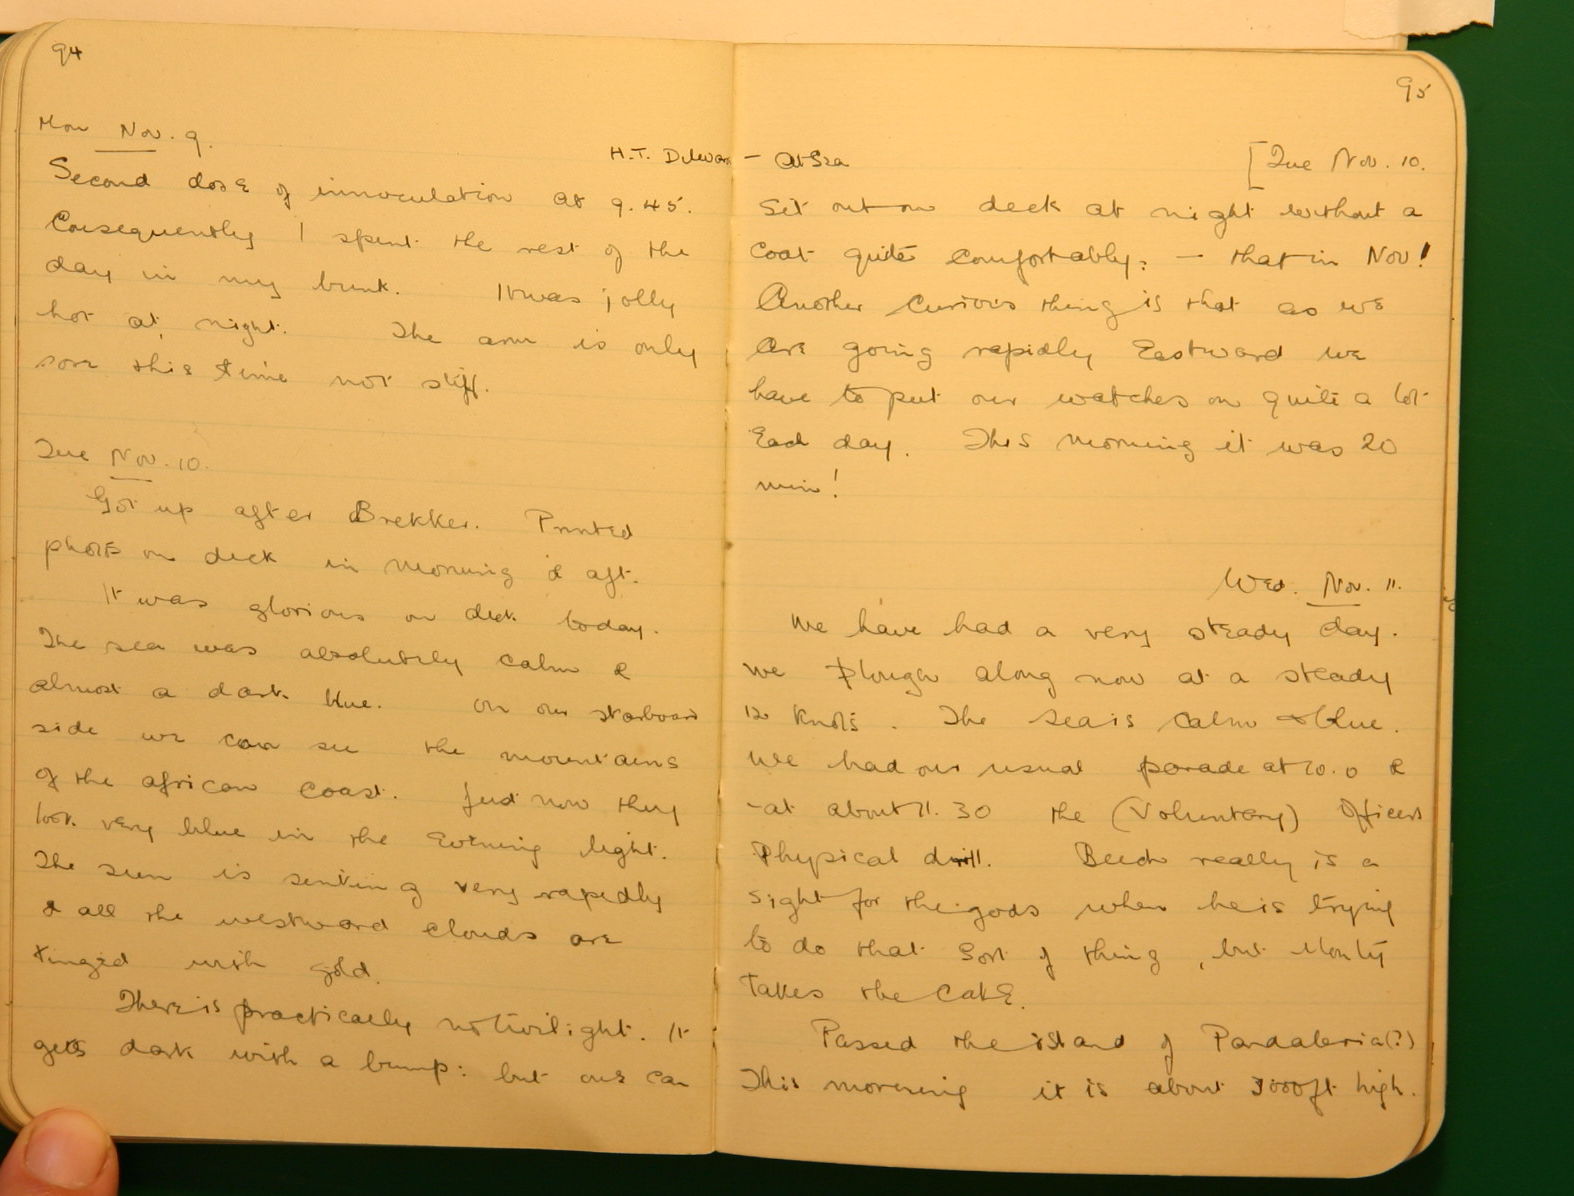 94
Mon Nov. 9.
H.T. Dilwara
Second dose of innoculation at 9.45.
Consequently I spent the rest of the
day in my bunk. It was jolly
hot at night. The arm is only
sore this time not stiff.
Tue Nov. 10.
Got up after Brekker. Printed
photos on deck in morning & aft.
It was glorious on deck today.
The sea was absolutely calm &
almost a dark blue. On our starboard
side we can see the mountains
of the african coast. Just now they
look very blue in the Evening light.
The sun is sinking very rapidly
& all the westward clouds are
tinged with gold.
There is practically no twilight. It
gets dark with a bump: but one can
95
- At Sea
[Tue Nov. 10.
Sit out on deck at night without a
coat quite comfortably: - that in Nov!
Another curious thing is that as we
are going rapidly Eastward we
have to put our watches on quite a lot
Each day. This morning it was 20
min!
Wed. Nov. 11.
We have had a very steady day.
We plough along now at a steady
12 knots. The sea is calm & blue.
We had our usual parade at 10.0 &
- at about 11.30 the (Voluntary) Officers
Physical drill. Beech really is a
sight for the gods when he is trying
to do that sort of thing, but Monty
takes the cake.
Passed the island of Pandaleria(?)
This morning it is about 3000ft high.